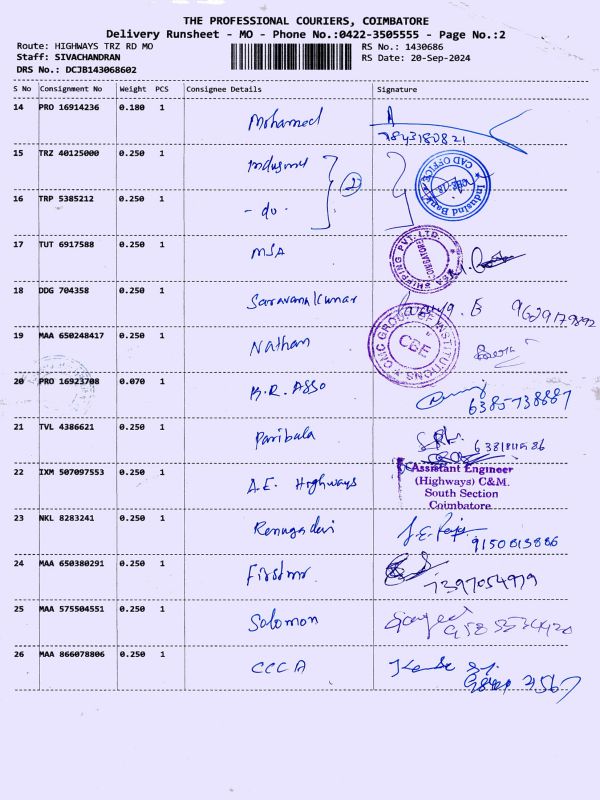 THE PROFESSIONAL COURIERS, COIMBATORE
Delivery Runsheet - MO - Phone No.:0422-3505555 - Page No.:2
Route: HIGHWAYS TRZ RD MO
RS No.: 1430686
Staff: SIVACHANDRAN
RS Date: 20-Sep-2024
DRS No.: DCJB143068602
S No Consignment No Weight PCS Consignee Details Signature
14 PRO 16914236 0.180 1 Mohamed
7843180821
15 TRZ 40125000 0.250 1
Indusind Bank
CAD OFFICE
16 TRP 5385212 0.250 1 - do - 2
17 TUT 6917588 0.250 1 MSA
MSA SHIPPING PVT. LTD.
COIMBATORE
18 DDG 704358 0.250 1 Saravana kumar
19 MAA 650248417 0.250 1 Nathan
CMC GROUP OF INSTITUTIONS
CBE
20 PRO 16923708 0.070 1 B.R. ASSO
6385738887
21 TVL 4386621 0.250 1 Paribala
22 IXM 507097553 0.250 1 A.E. Highways
Assistant Engineer
(Highways) C&M.
South Section
Coimbatore
23 NKL 8283241 0.250 1 Renuga devi
9150813886
24 MAA 650380291 0.250 1
7397054979
25 MAA 575504551 0.250 1 Solomon
26 MAA 866078806 0.250 1 CCCA